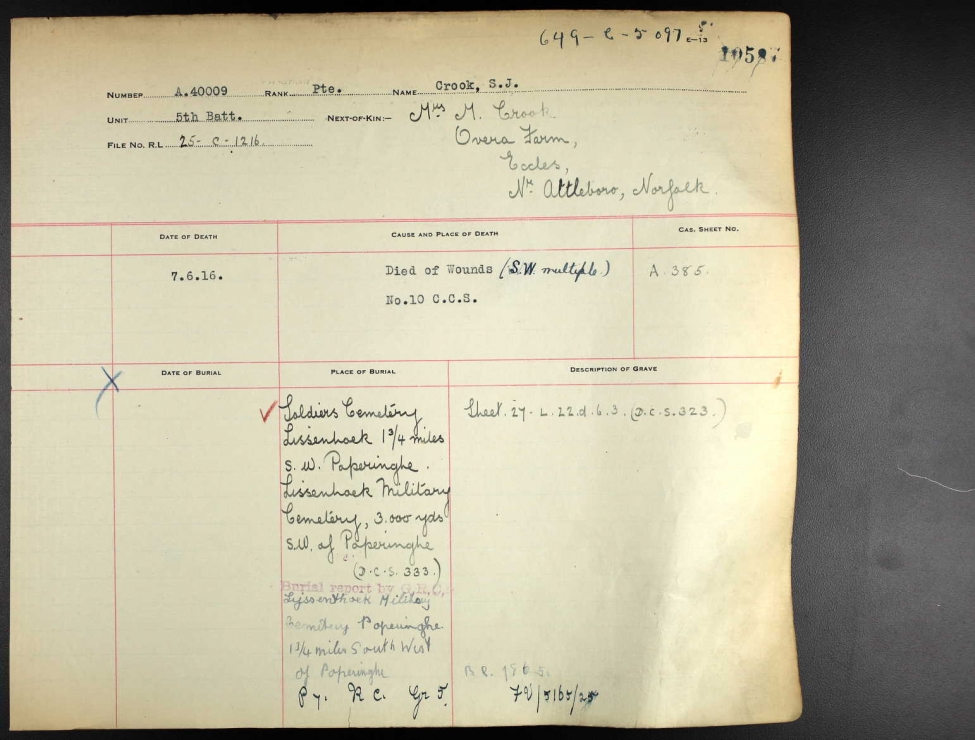 649-C-5097
E-13
NUMBER A.40009 RANK Pte. NAME Crook, S.J.
UNIT 5th Batt. NEXT-OF-KIN:- Mrs M. Crook
Overa Farm,
FILE No. R.L 25-C-1216.
Eccles,
Nr. Attleboro, Norfolk.
DATE OF DEATH CAUSE AND PLACE OF DEATH CAS. SHEET NO.
7.6.16. Died of Wounds (S.W. multiple.) A.385.
No.10 C.C.S.
DATE OF BURIAL PLACE OF BURIAL DESCRIPTION OF GRAVE
Soldiers Cemetery Sheet. 27. L. 22.d.6.3. (D.C.S.323.)
Lissenhoek 1 3/4 miles
S.W. Poperinghe.
Lissenhoek Military
Cemetery, 3.000 yds
S.W. of Poperinghe
(D.C.S. 333.)
Burial report by G.R.C.
Lyssenthoek Military
Cemetery Poperinghe
1 3/4 miles South West
of Poperinghe